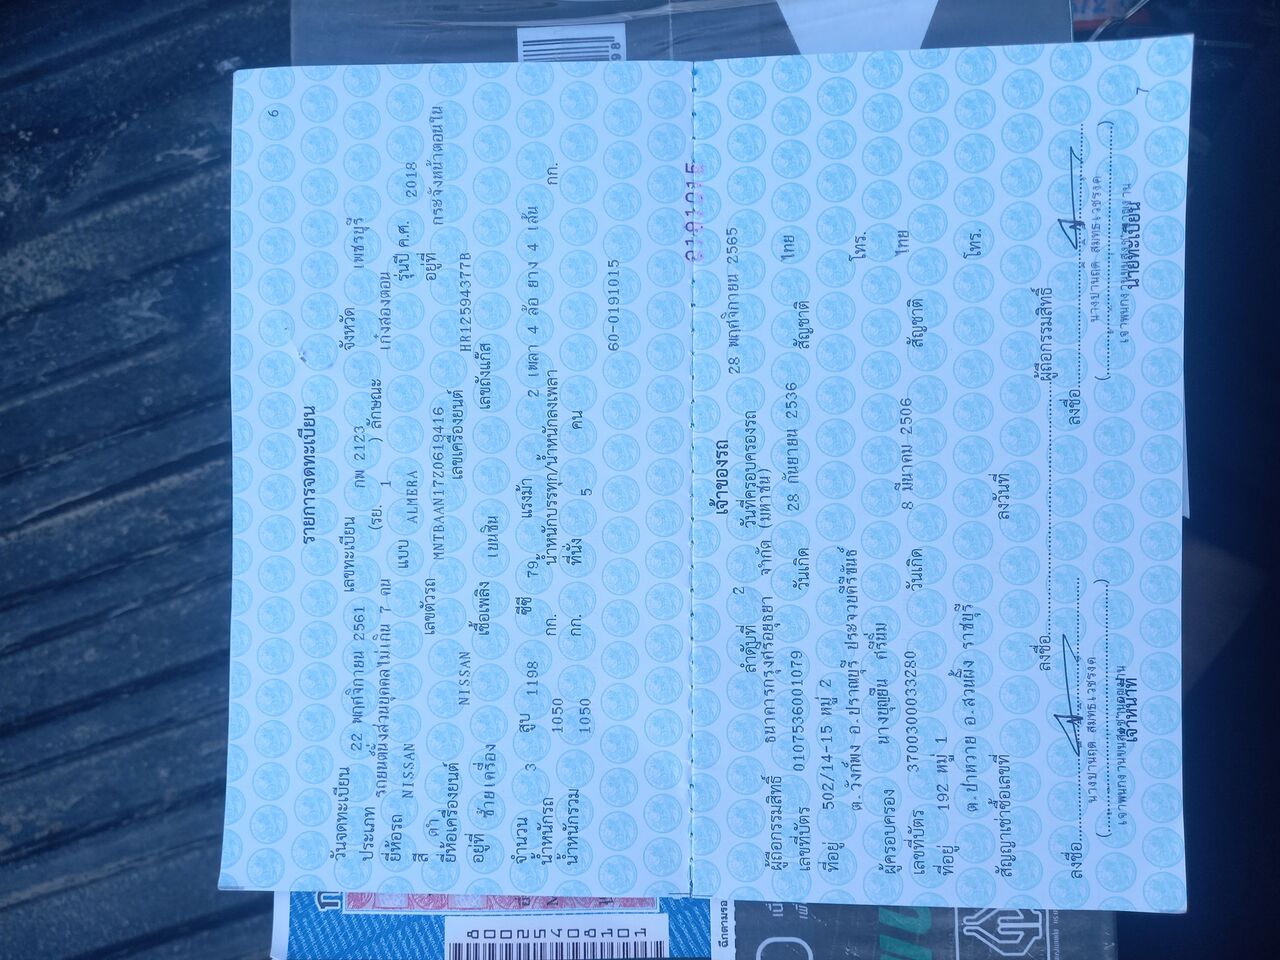 6
รายการจดทะเบียน
วันจดทะเบียน 22 พฤศจิกายน 2561 เลขทะเบียน กพ 2123 จังหวัด เพชรบุรี
ประเภท รถยนต์นั่งส่วนบุคคลไม่เกิน 7 คน (รย. 1 ) ลักษณะ เก๋งสองตอน
ยี่ห้อรถ NISSAN แบบ ALMERA รุ่นปี ค.ศ. 2018
สี ดำ เลขตัวรถ MNTBAAN17Z0619416 อยู่ที่ กระจังหน้าตอนใน
ยี่ห้อเครื่องยนต์ NISSAN เลขเครื่องยนต์ HR12594377B
อยู่ที่ ซ้ายเครื่อง เชื้อเพลิง เบนซิน เลขถังแก๊ส
จำนวน 3 สูบ 1198 ซีซี 79 แรงม้า 2 เพลา 4 ล้อ ยาง 4 เส้น
น้ำหนักรถ 1050 กก. น้ำหนักบรรทุก/น้ำหนักลงเพลา กก.
น้ำหนักรวม 1050 กก. ที่นั่ง 5 คน
60-0191015
0191015
เจ้าของรถ
ลำดับที่ 2 วันที่ครอบครองรถ 28 พฤศจิกายน 2565
ผู้ถือกรรมสิทธิ์ ธนาคารกรุงศรีอยุธยา จำกัด (มหาชน)
เลขที่บัตร 0107536001079 วันเกิด 28 กันยายน 2536 สัญชาติ ไทย
ที่อยู่ 502/14-15 หมู่ 2
ต.วังก์พง อ.ปราณบุรี ประจวบคีรีขันธ์ โทร.
ผู้ครอบครอง นางบุญยืน ศรีนิ่ม
เลขที่บัตร 3700300033280 วันเกิด 8 มีนาคม 2506 สัญชาติ ไทย
ที่อยู่ 192 หมู่ 1
ต.ป่าหวาย อ.สวนผึ้ง ราชบุรี โทร.
สัญญาเช่าซื้อเลขที่ ลงวันที่
ลงชื่อ ผู้ถือกรรมสิทธิ์
ลงชื่อ ลงชื่อ
เจ้าหน้าที่ นายทะเบียน
7
80025408101